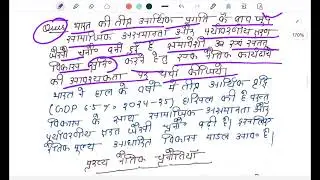 Ques भारत की तीव्र आर्थिक प्रगति के बाद भी
सामाजिक असमानता और पर्यावरणीय क्षरण
जैसी चुनौती बनी हुई है समावेशी एवं सतत
विकास करने हेतु एक नैतिक कार्यढांचे
की आवश्यकता पर चर्चा कीजिये।
भारत ने हाल के वर्षों में तीव्र आर्थिक वृद्धि
(GDP 6.5% 2024-25) हासिल की है परन्तु
विकास के साथ सामाजिक असमानता और
पर्यावरणीय क्षरण जैसी चुनौती बढ़ी है। इसलिए
नैतिक मूल्य आधारित विकास माडल आव० है।
मुख्य नैतिक चुनौतियाँ